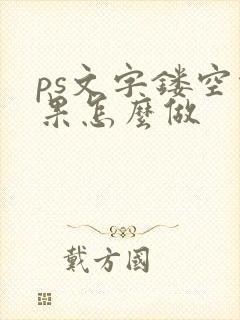 ps文字镂空
果怎麼做
戴方國